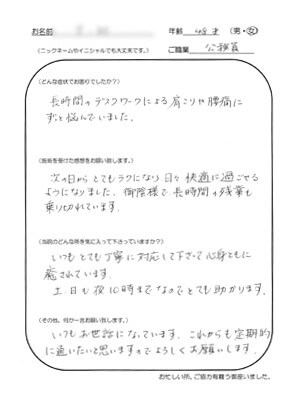 お名前
年齢 48才 (男・女)
(ニックネームやイニシャルでも大丈夫です。) ご職業 公務員
(どんな症状でお困りでしたか?)
長時間のデスクワークによる肩こりや腰痛に
ずっと悩んでいました。
(施術を受けた感想をお願い致します。)
次の日からとてもラクになり日々快適に過ごせる
ようになりました。御陰様で長時間の残業も
乗り切れています。
(当院のどんな所を気に入って下さっていますか?)
いつもとても丁寧に対応して下さって心身ともに
癒されています。
土、日も夜10時までなのでとても助かります。
(その他、何か一言お願い致します。)
いつもお世話になっています。これからも定期的
に通いたいと思いますのでよろしくお願いします。
お忙しい所、ご協力有難う御座いました。